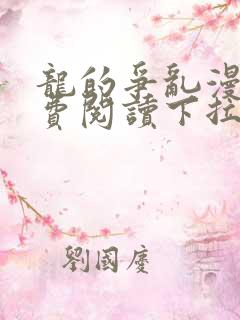 龍的爭亂漫
費閱讀下拉
劉國慶